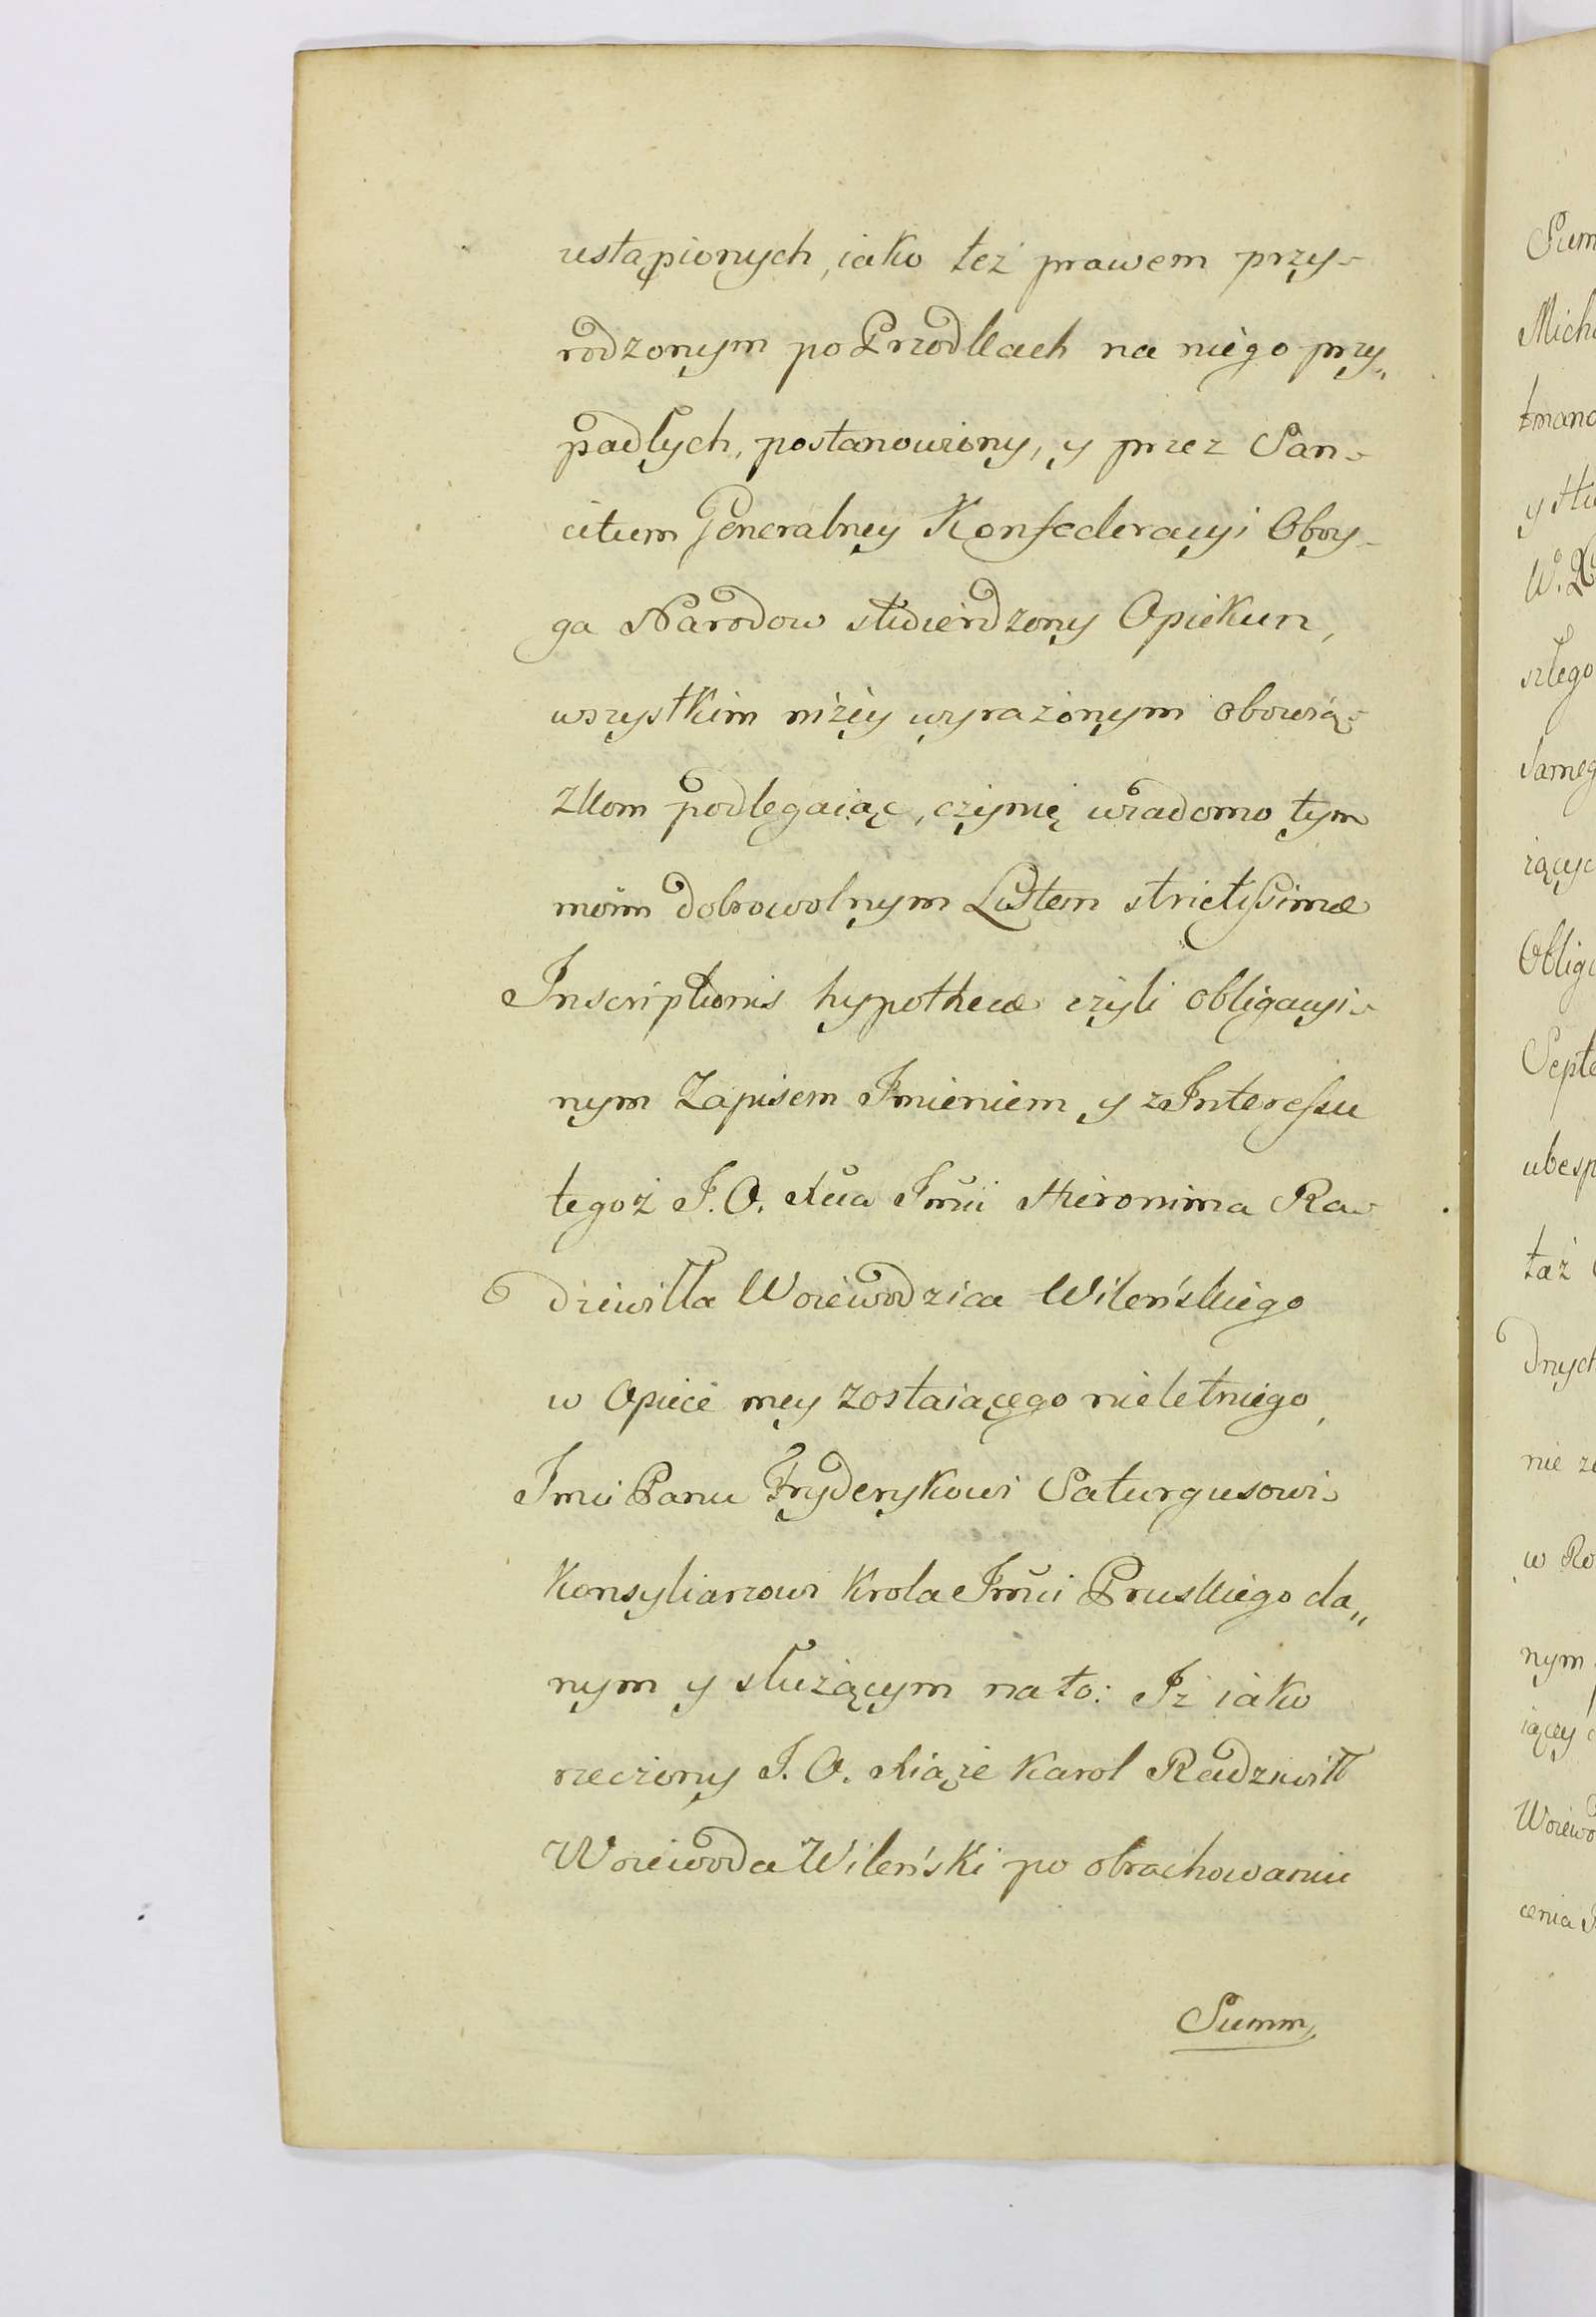 ustąpionych, iako też prawem przy-
rodzonym po Przodkach na niego przy„
padłych, postanowiony, y przez San-
citum Generalney Konfederacyi Oboy-
ga Narodow stwierdzony Opiekun,
wszystkim niżey wyrażonym obowią-
zkom podlegaiąc, czynię wiadomo tym
moim dobrowolnym Listem strictissimæ
Inscriptionis hypothecæ czyli obligacyi-
nym Zapisem Imieniem y z Interessu
tegoż J. O. Xcia Jmci Hieronima Ra-
dziwiłła Woiewodzica Wileńskiego
w Opiece mey zostaiącego nieletniego,
Jmci Panu Fryderykowi Saturgusowi
Konsyliarzowi Krola Jmci Pruskiego da„
nym y służącym na to: Iż iako
rzeczony J. O. Xiąże Karol Radziwiłł
Woiewoda Wileński po obrachowaniu
Summ,
Sum
Mich
tmano
y stu
szłego
Sameg
iącyc
Oblig
Septe
ubesp
taż
dnych
nie z
w Ro
nym
iącey
Woiewo
cenia